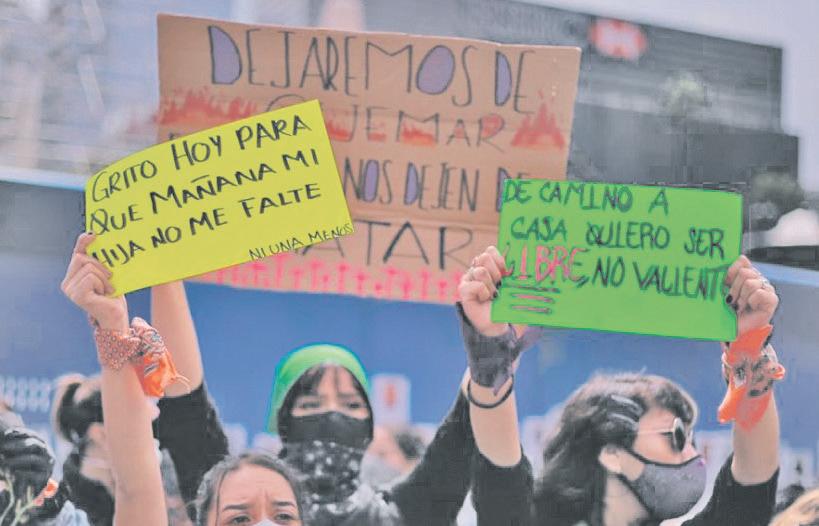 DEJAREMOS DE
QUEMAR
NOS DEJEN DE
MATAR
GRITO HOY PARA
QUE MAÑANA MI
HIJA NO ME FALTE
NI UNA MENOS
DE CAMINO A
CASA QUIERO SER
LIBRE, NO VALIENTE